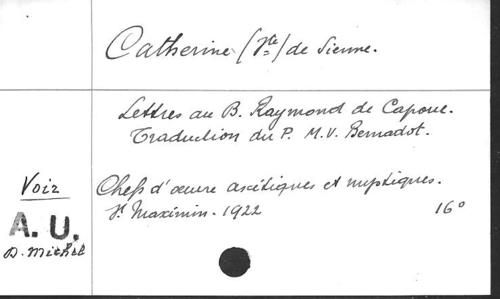 Catherine (Ste) de Sienne.
Lettres au B. Raymond de Capoue.
Traduction du P. M.V. Bernadot.
Voir
Chefs d'œuvre ascétiques et mystiques.
A.U.
St Maximin. 1922 16°
D. Michel